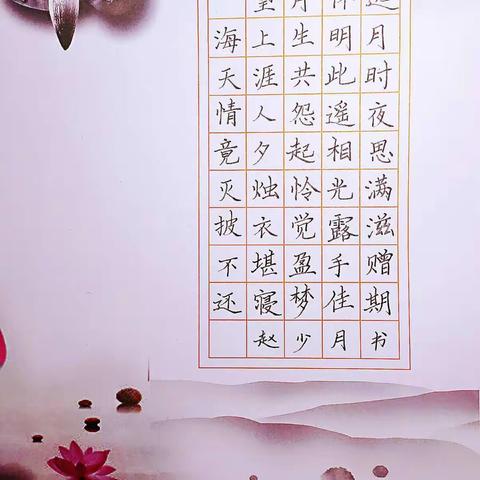 望月怀远
海上生明月
天涯共此时
情人怨遥夜
竟夕起相思
灭烛怜光满
披衣觉露滋
不堪盈手赠
还寝梦佳期
赵少月书